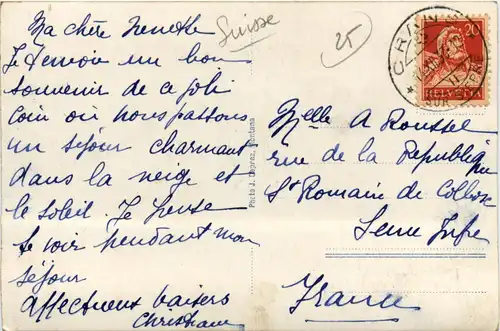 Ma chère
Je t'envoie un bon
souvenir de ce joli
coin où nous passons
un séjour charmant
dans la neige et
le soleil. Je pense
te voir pendant mon
séjour
Affectueux baisers
Christiane
Suisse
25
Photo J. Deprez, Montana
20
HELVETIA
CRANS
SUR SIERRE
Melle A Roussel
rue de la République
St Romain de Colbosc
Seine Infre
France